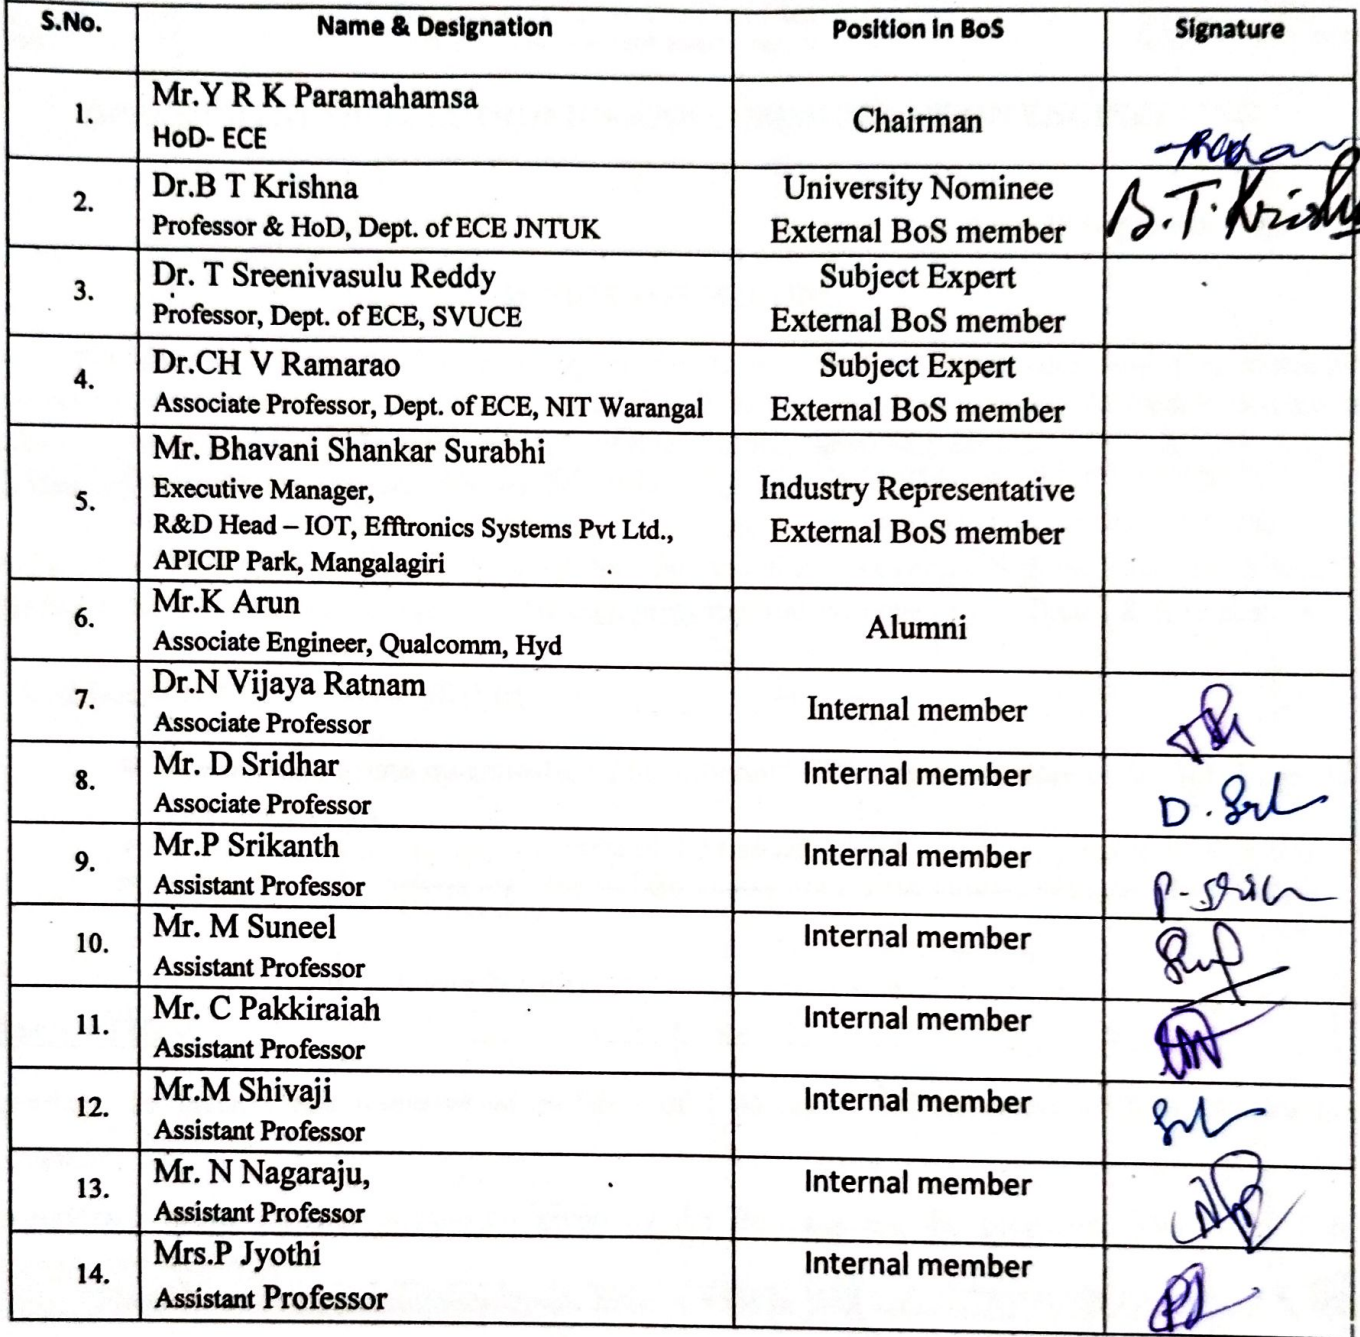 S.No. Name & Designation Position in BoS Signature
1. Mr.Y R K Paramahamsa
HoD- ECE
Chairman
2. Dr.B T Krishna
Professor & HoD, Dept. of ECE JNTUK
University Nominee
External BoS member
B.T. Krishna
3. Dr. T Sreenivasulu Reddy
Professor, Dept. of ECE, SVUCE
Subject Expert
External BoS member
4. Dr.CH V Ramarao
Associate Professor, Dept. of ECE, NIT Warangal
Subject Expert
External BoS member
5. Mr. Bhavani Shankar Surabhi
Executive Manager,
R&D Head – IOT, Efftronics Systems Pvt Ltd.,
APICIP Park, Mangalagiri
Industry Representative
External BoS member
6. Mr.K Arun
Associate Engineer, Qualcomm, Hyd
Alumni
7. Dr.N Vijaya Ratnam
Associate Professor
Internal member
8. Mr. D Sridhar
Associate Professor
Internal member
D.
9. Mr.P Srikanth
Assistant Professor
Internal member
P-
10. Mr. M Suneel
Assistant Professor
Internal member
11. Mr. C Pakkiraiah
Assistant Professor
Internal member
12. Mr.M Shivaji
Assistant Professor
Internal member
13. Mr. N Nagaraju,
Assistant Professor
Internal member
14. Mrs.P Jyothi
Assistant Professor
Internal member